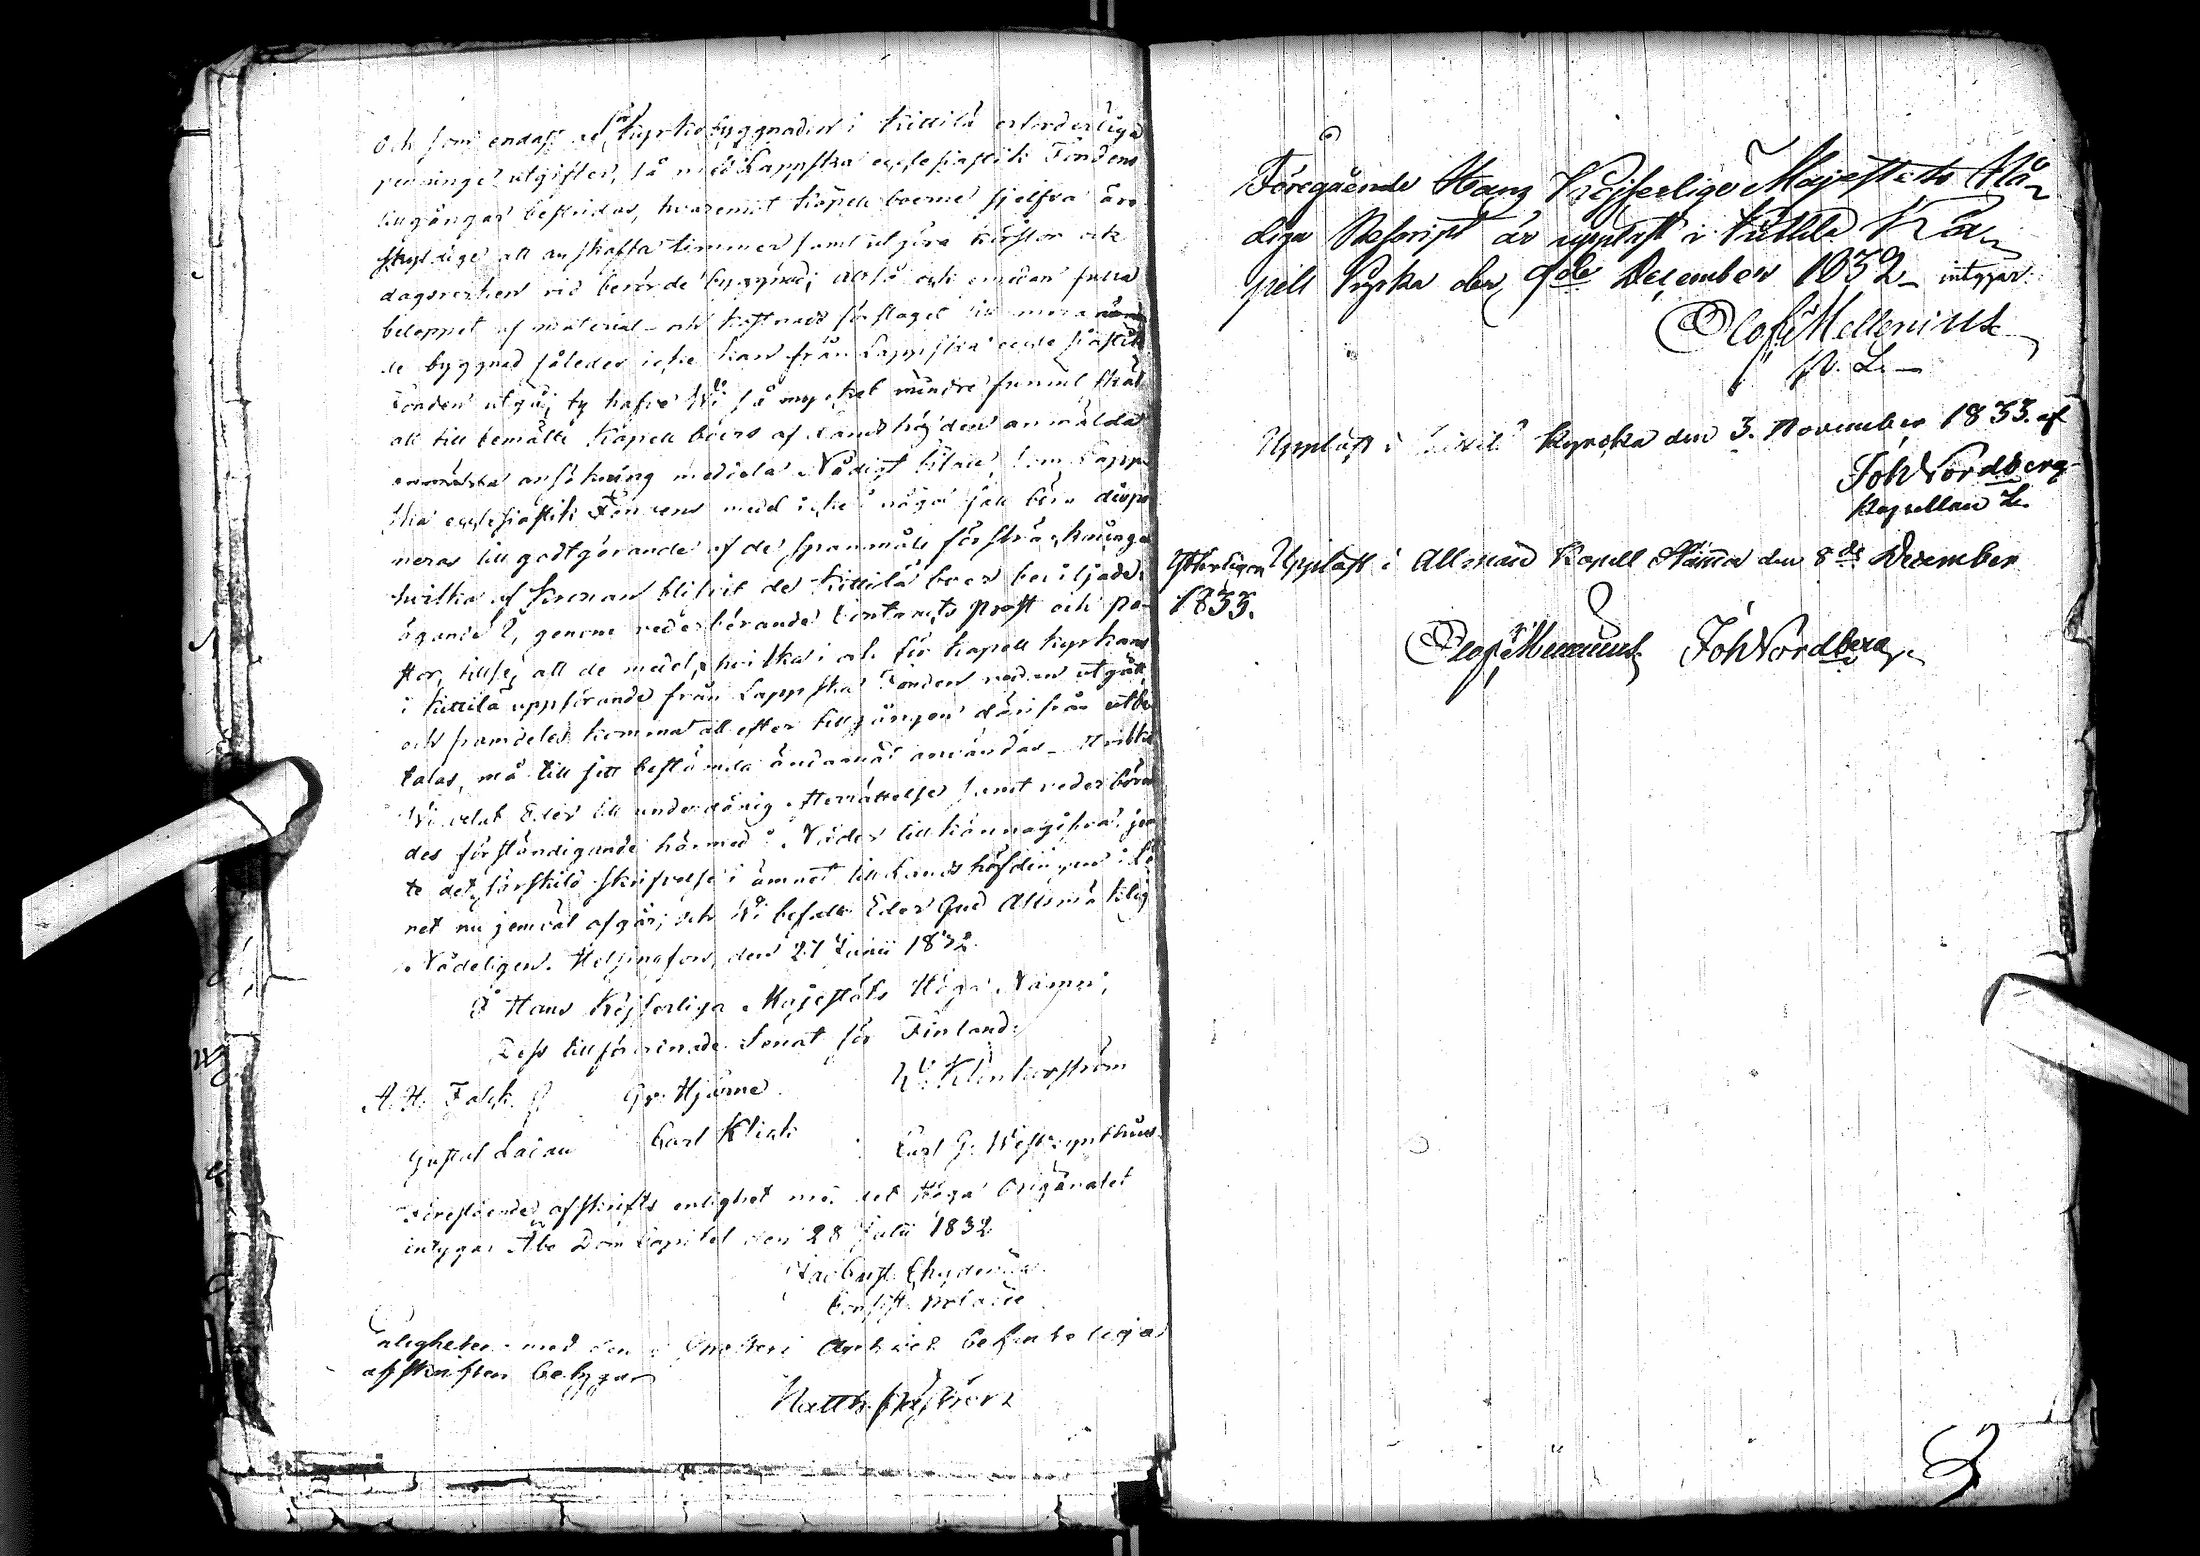 och som endast de för kyrkobyggnaden i Kittilä erforderliga
penninge utgifter, så med Lappska ecclesiastik Fondens
tillgångar bestridas, hvaremot Kapell boerne sjelfva äro
skyldige att anskaffa timmer samt utgöra körslor och
dagsverken vid berörde byggnad; Altså och emedan fulla
beloppet af material- och kostnads förslaget till mera
de byggnad således icke kan från Lappska ecclesiastik
Fonden utgå; ty hafve Wi så mycket mindre funnit skäl
att till bemälte Kapell boers af Landshöfden anmälda
ansökning meddela Nådigt bifall, som Lapp-
ska ecclesiastik Fondens medel icke i något fall böra dispo
neras till godtgörande af de spannmåls försträckninga
hvilka af Kronan blifvit de Kittilä boer beviljade;
ägande I, genom vederbörande Contracts Prost och Pa-
stor, tillse, att de medel, hvilka i och för Kapell kyrkans
i Kittilä uppförande från Lappska Fonden redan utgått
och framdeles komma att efter tillgången därifrån utbe
talas, må till sitt bestämda ändamål användas. Hvilket
Wi velat Eder till underdånig efterrättelse samt vederböran
des förständigande härmed i Nåder tillkännagifva,
te det särskild skrifvelse i ämnet till Landshöfdingen i Lä
net nu jemväl afgår; och Wi befalle Eder Gud Allsmäktig
Nådeligen. Helsingfors, den 27 Junii 1832.
I Hans Kejserliga Majestäts Höga Namn,
Dess tillförordnade Senat för Finland:
A. H. Falck. Gr. Hjärne. W. Klinckowström
Gustaf Ladau Carl Klick Carl G. Westzynthius.
Förestående afskrifts enlighet med det Höga Originalet
intygar Åbo Dom Capitel den 28 Julii 1832
Jac Gust. Chydenius
Consist. Notarie
Enligheten med den i Prosteri Archivet befinteliga
afskriften betygar
Matth. Castrén
Föregående Hans Kejserliga Majestäts Nå-
diga Rescript är uppläst i Kittilä Ka-
pell Kyrka den 9de December 1832 intygar.
Olof Mellenius
V. L.
Uppläst i Kittilä Kyrcka den 3. November 1833. af
Joh Nordberg
Kapellan L.
Ytterligare Uppläst i Allmän Kapell Stämma den 8de December
1833.
Olof Mellenius Joh Nordberg